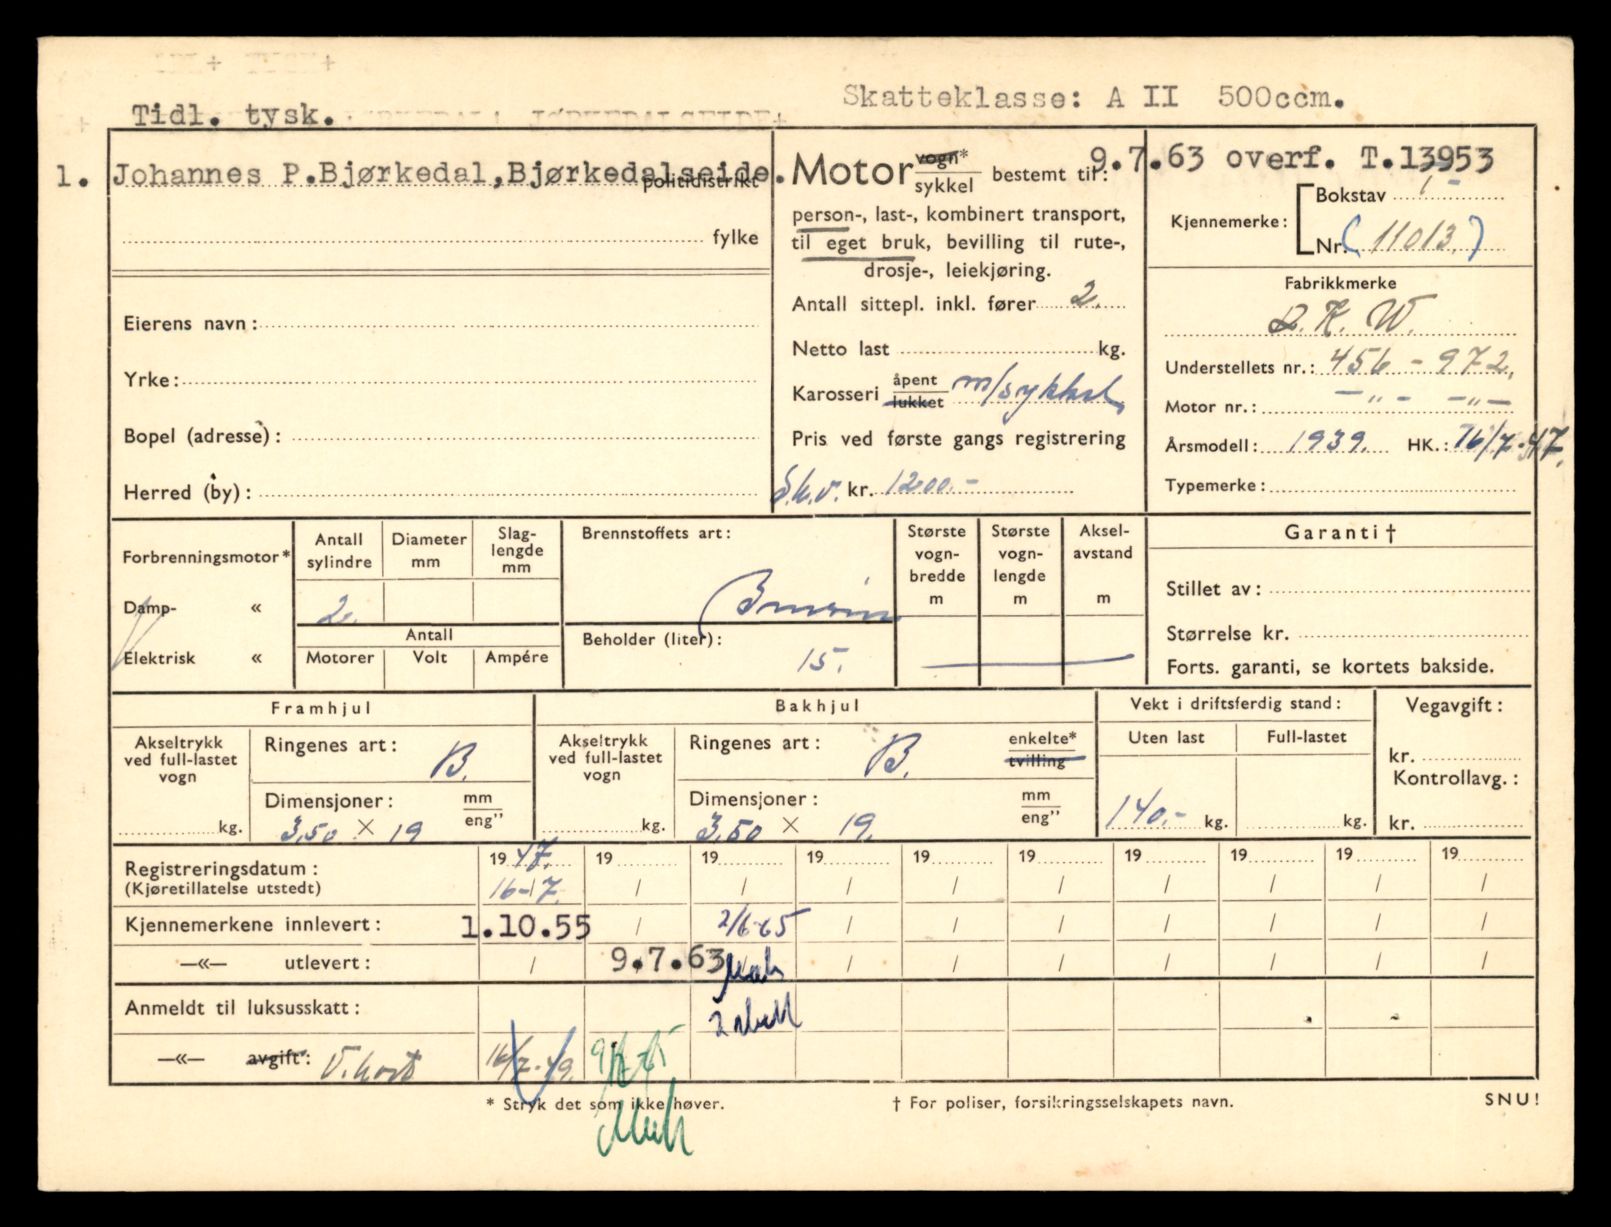 Skatteklasse: A II 500ccm.
Tidl. tysk.
1. Johannes P.Bjørkedal,Bjørkedalseide.
politidistrikt
fylke
Eierens navn:
Yrke:
Bopel (adresse):
Herred (by):
Motor vogn* sykkel bestemt til:
person-, last-, kombinert transport,
til eget bruk, bevilling til rute-,
drosje-, leiekjøring.
Antall sittepl. inkl. fører 2.
Netto last kg.
Karosseri åpent lukket m/sykkel
Pris ved første gangs registrering
kr. 1200.-
9.7.63 overf. T.13953
Kjennemerke: Bokstav
Nr. (11013)
Fabrikkmerke
D.K.W.
Understellets nr.: 456-972.
Motor nr.: -"- -"-
Årsmodell: 1939. HK.: 16/7-47.
Typemerke:
Forbrenningsmotor*
Damp- «
Elektrisk «
Antall sylindre
Diameter mm
Slag-lengde mm
2.
Antall
Motorer Volt Ampére
Brennstoffets art:
Bensin
Beholder (liter):
15.
Største vogn-bredde m
Største vogn-lengde m
Aksel-avstand m
Garanti †
Stillet av:
Størrelse kr.
Forts. garanti, se kortets bakside.
Framhjul
Akseltrykk ved full-lastet vogn
kg.
Ringenes art: B.
Dimensjoner: mm eng"
3,50 × 19
Bakhjul
Akseltrykk ved full-lastet vogn
kg.
Ringenes art: B. enkelte* tvilling
Dimensjoner: mm eng"
3,50 × 19.
Vekt i driftsferdig stand:
Uten last Full-lastet
140.- kg. kg.
Vegavgift:
kr.
Kontrollavg.:
kr.
Registreringsdatum: 19 47. 19 19 19 19 19 19 19 19 19
(Kjøretillatelse utstedt) 16-7. / / / / / / / / /
Kjennemerkene innlevert: 1.10.55 / 2/6-65 / / / / / / /
—«— utlevert: / 9.7.63 / / / / / / /
Anmeldt til luksusskatt:
—«— avgift*: V.kort 16/7-49.
* Stryk det som ikke høver.
† For poliser, forsikringsselskapets navn.
SNU!